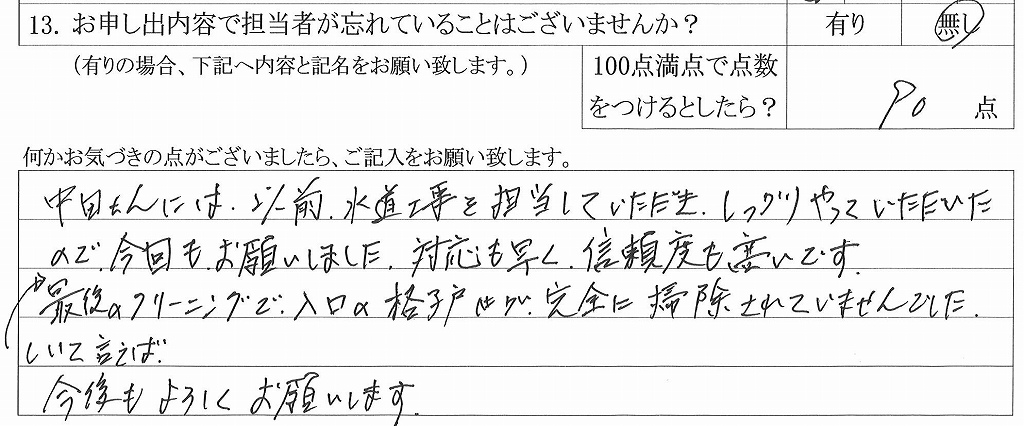 13. お申し出内容で担当者が忘れていることはございませんか？ 有り 無し
（有りの場合、下記へ内容と記名をお願い致します。）
100点満点で点数
をつけるとしたら？ 90 点
何かお気づきの点がございましたら、ご記入をお願い致します。
中田さんには、以前、水道工事を担当していただき、しっかりやっていただいた
ので、今回もお願いしました。対応も早く、信頼度も高いです。
最後のクリーニングで、入口の格子戸が、完全に掃除されていませんでした。
しいて言えば、
今後もよろしくお願いします。